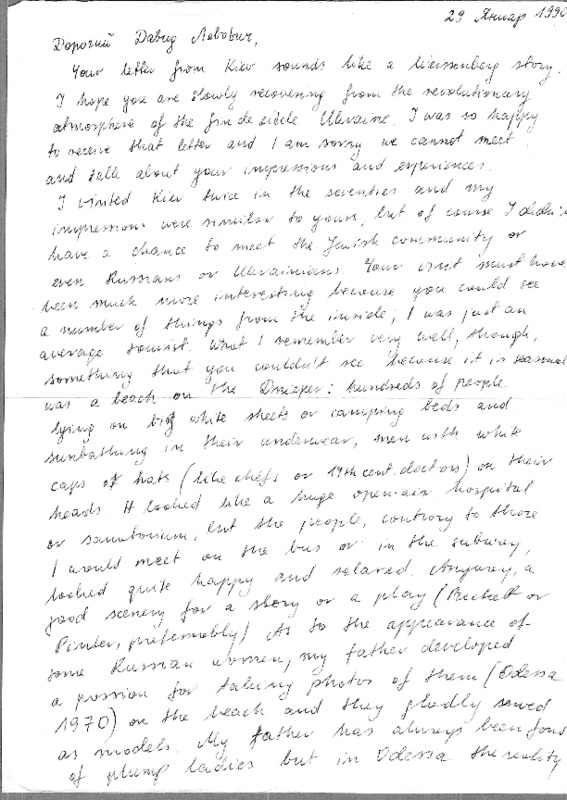 29 Январ 1990
Дорогий Давид Лебович,
Your letter from Kiev sounds like a Weissenberg story.
I hope you are slowly recovering from the revolutionary
atmosphere of the fin de siècle Ukraine. I was so happy
to receive that letter and I am sorry we cannot meet
and talk about your impressions and experiences.
I visited Kiev twice in the seventies and my
impressions were similar to yours, but of course I didn't
have a chance to meet the Jewish community or
even Russians or Ukrainians. Your visit must have
been much more interesting because you could see
a number of things from the inside; I was just an
average tourist. What I remember very well, though,
something that you couldn't see because it is seasonal
was a beach on the Dnieper: hundreds of people
lying on big white sheets or camping beds and
sunbathing in their underwear, men with white
caps or hats (like chefs or 19th cent. doctors) on their
heads. It looked like a huge open-air hospital
or sanatorium, but the people, contrary to those
I would meet on the bus or in the subway,
looked quite happy and relaxed. Anyway, a
good scenery for a story or a play (Beckett or
Pinter, preferrably). As to the appearance of
some Russian women, my father developed
a passion for taking photos of them (Odessa
1970) on the beach and they gladly served
as models. My father has always been fond
of plump ladies but in Odessa the reality